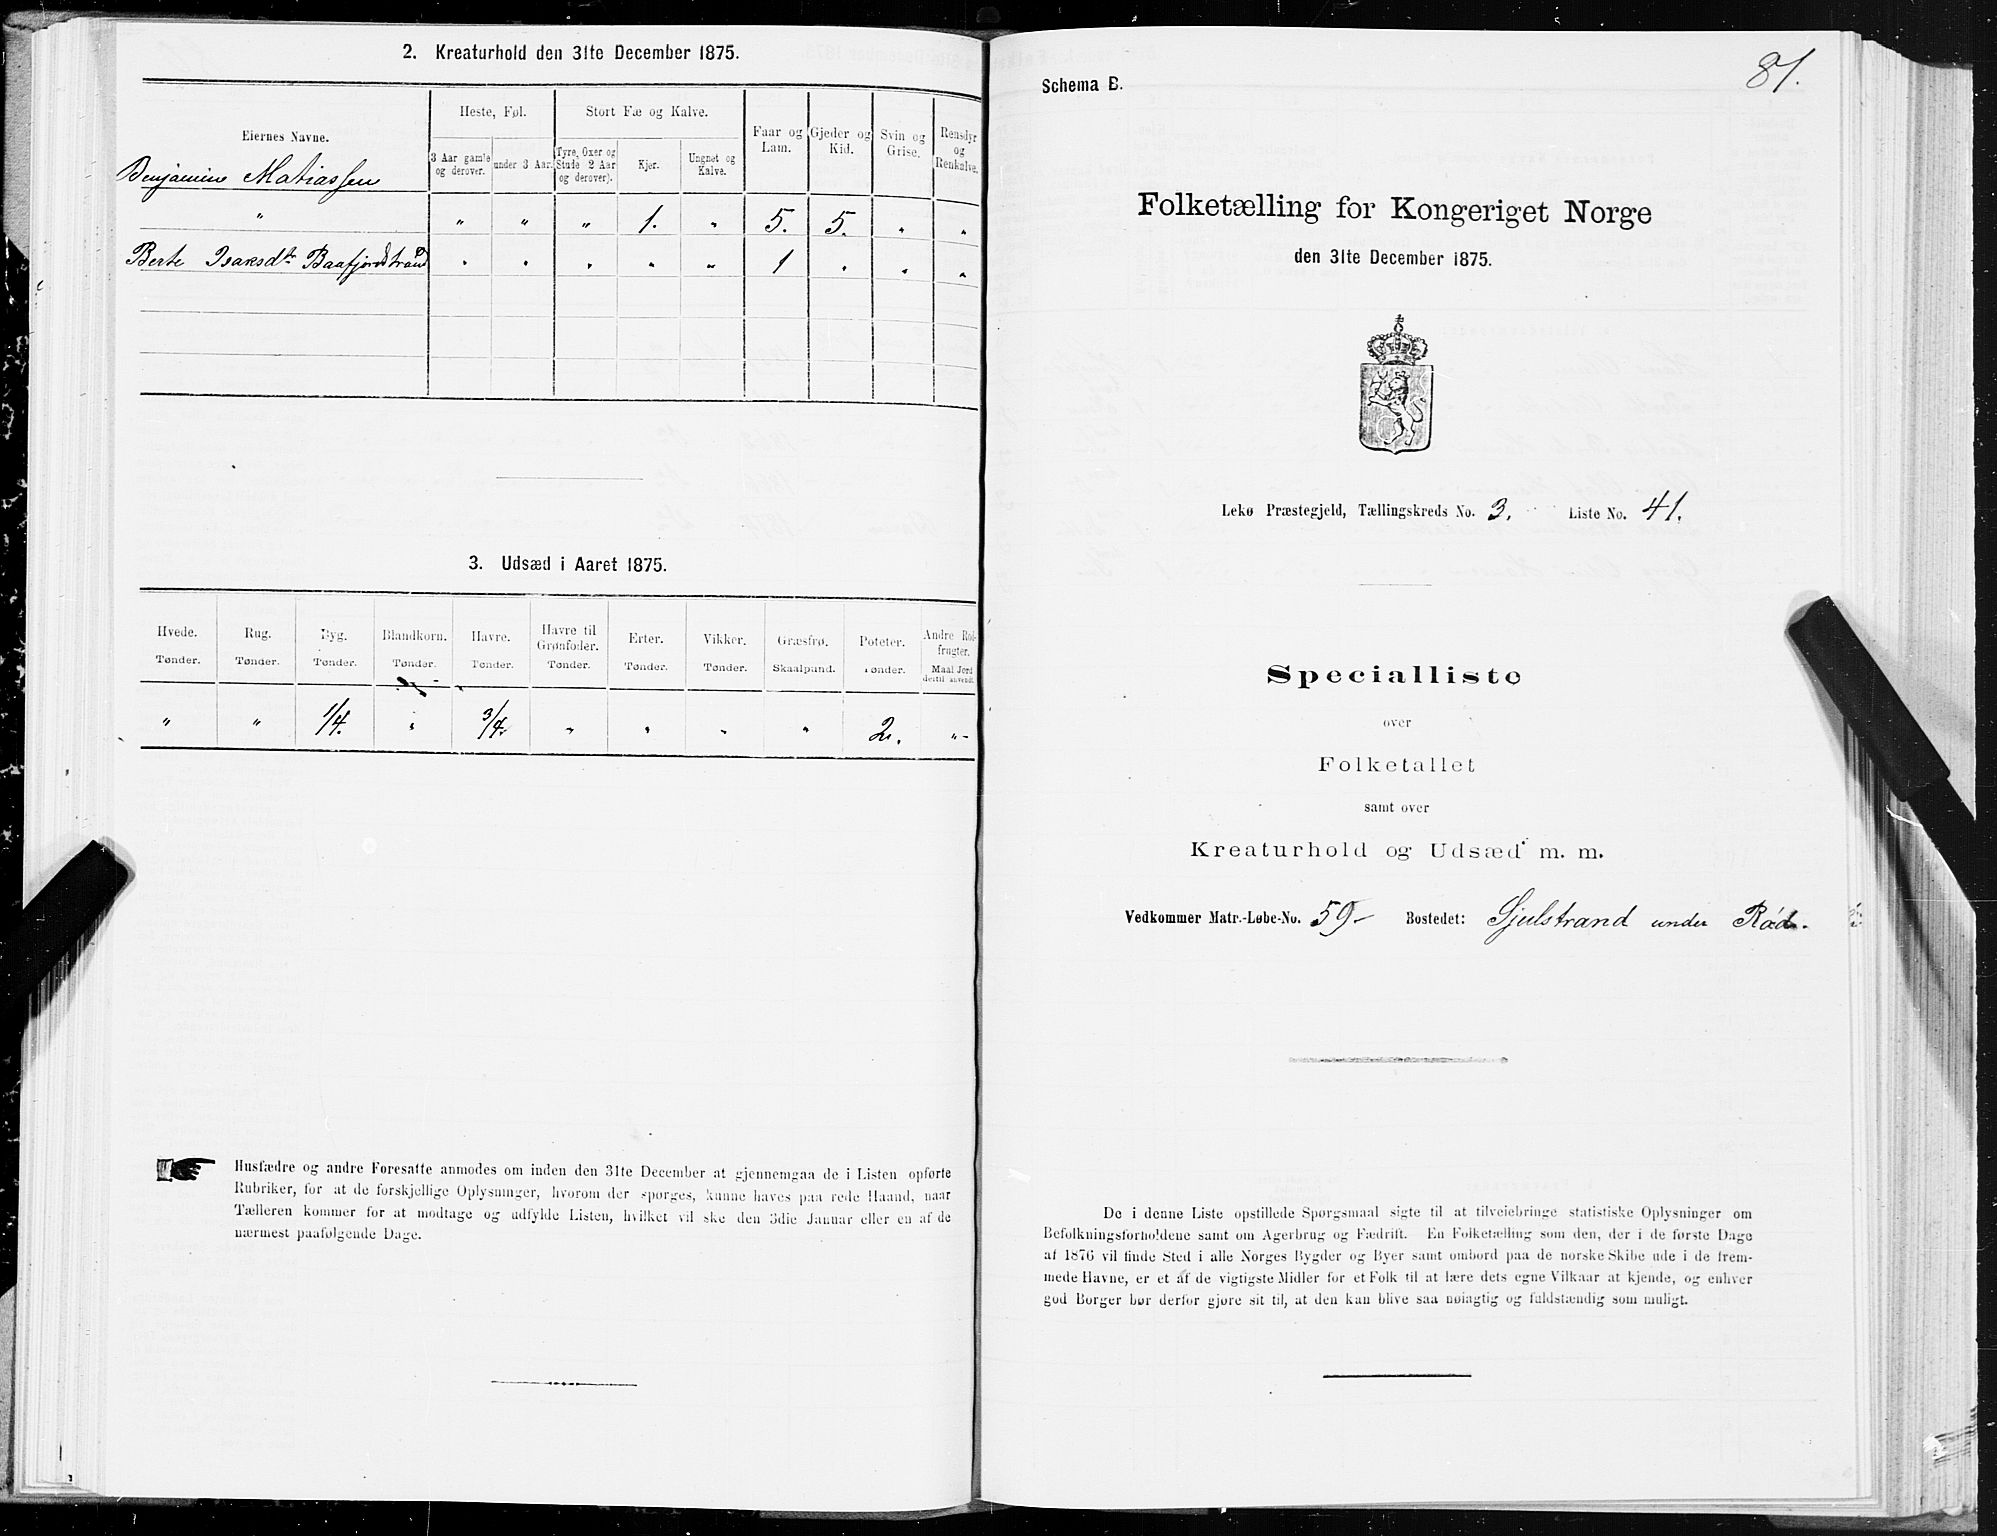 2. Kreaturhold den 31te December 1875.
Eiernes Navne.
Heste, Føl.
Stort Fæ og Kalve.
Faar og Lam.
Gjeder og Kid.
Svin og Grise.
Rensdyr og Renkalve.
3 Aar gamle og derover.
under 3 Aar.
Tyre, Oxer og Stude 2 Aar og derover).
Kjer.
Ungnet og Kalve.
Benjamin Matiassen
" " " " 1. " 5. 5. " "
Berte Isaksdtr Baafjordstrand " " " " " 1 " " "
3. Udsæd i Aaret 1875.
Hvede. Rug. Byg. Blandkorn. Havre. Havre til Grønfoder. Erter. Vikker. Græsfrø. Poteter. Andre Rodfrugter.
Tønder. Tønder. Tønder. Tønder. Tønder. Tønder. Tønder. Tønder. Skaalpund. Tønder. Maal Jord dertil anvendt.
" " 1/4. " 3/4. " " " " 2. "
Husfædre og andre Foresatte anmodes om inden den 31te December at gjennemgaa de i Listen opførte
Rubriker, for at de forskjellige Oplysninger, hvorom der spørges, kunne haves paa rede Haand, naar
Tælleren kommer for at modtage og udfylde Listen, hvilket vil ske den 3die Januar eller en af de
nærmest paafølgende Dage.
81.
Schema B.
Folketælling for Kongeriget Norge
den 31te December 1875.
Lekø Præstegjeld, Tællingskreds No. 3. Liste No. 41.
Specialliste
over
Folketallet
samt over
Kreaturhold og Udsæd m. m.
Vedkommer Matr.-Løbe-No. 59 Bostedet: Sjulstrand under Rød.
De i denne Liste opstillede Spørgsmaal sigte til at tilveiebringe statistiske Oplysninger om
Befolkningsforholdene samt om Agerbrug og Fædrift. En Folketælling som den, der i de første Dage
af 1876 vil finde Sted i alle Norges Bygder og Byer samt ombord paa de norske Skibe ude i de frem-
mede Havne, er et af de vigtigste Midler for et Folk til at lære dets egne Vilkaar at kjende, og enhver
god Borger bør derfor gjøre sit til, at den kan blive saa nøiagtig og fuldstændig som muligt.